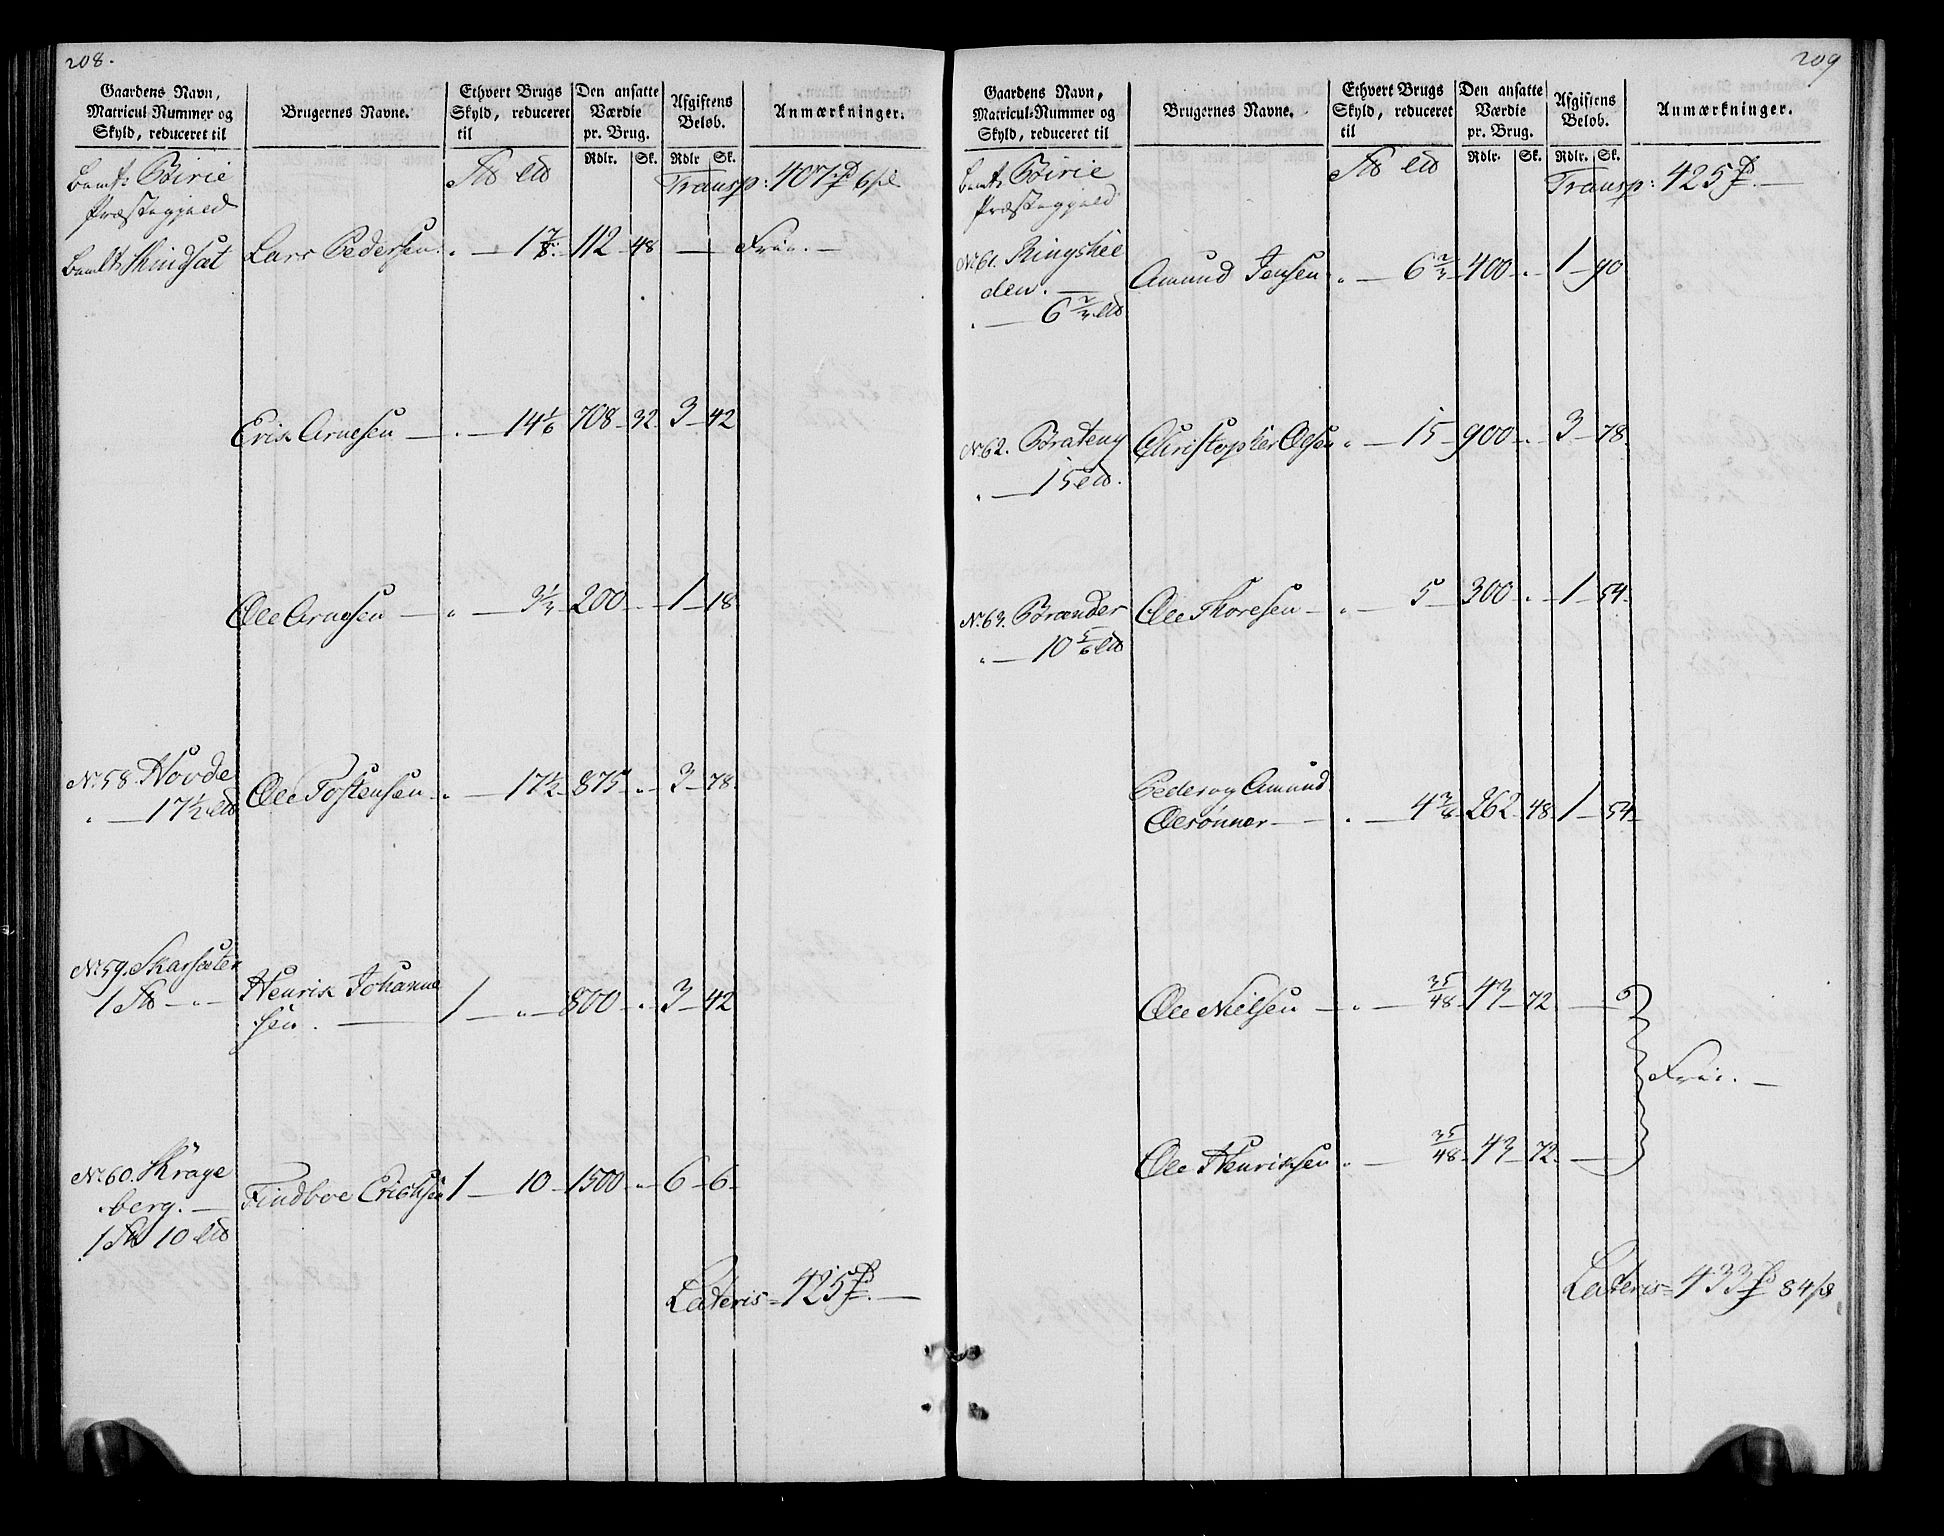 208.
Gaardens Navn, Matricul-Nummer og Skyld, reduceret til
Brugernes Navne.
Ethvert Brugs Skyld, reduceret til
Den ansatte Værdie pr. Brug.
Afgiftens Beløb.
Anmærkninger.
Rdlr. Sk. Rdlr Sk.
bemt: Birie
Præstegjeld
Transp: 407 6
bemlt Skindsæt Lars Pedersen 1 7/8 112 48 — Frie.
Erik Arnesen — 14 1/6 708 32 3 42
Ole Arnesen — 3 1/3 200 1 18
No. 58. Hovde Ole Tostensen 17 1/2 875 3 78
17 1/2
No. 59. Skarsæter Henrik Johanne
sen. — 1 — 800 3 42
1
No. 60. Skrage
berg. — Findboe Erichsen 1 — 10 1500 6 6
1 10
Lateris = 425
209
Gaardens Navn, Matricul-Nummer og Skyld, reduceret til
Brugernes Navne.
Ethvert Brugs Skyld, reduceret til
Den ansatte Værdie pr. Brug.
Afgiftens Beløb.
Anmærkninger.
Rdlr. Sk. Rdlr. Sk.
bemt: Birie
Præstegjeld
Transp: 425
No. 61. Ringshie
den. — Amund Jensen 6 2/3 400 1 90
6 2/3
No. 62. Brateng Christopher Olesen 15 900 3 78
15
No. 63. Brænder Ole Thoresen — 5 300 1 54
10 5/6
Peder og Amund
Olesønner — 4 3/8 262 48 1 54
Ole Nielsen — 35/48 43 72 —
Frie. —
Ole Henriksen 35/48 43 72 —
Lateris = 433 84